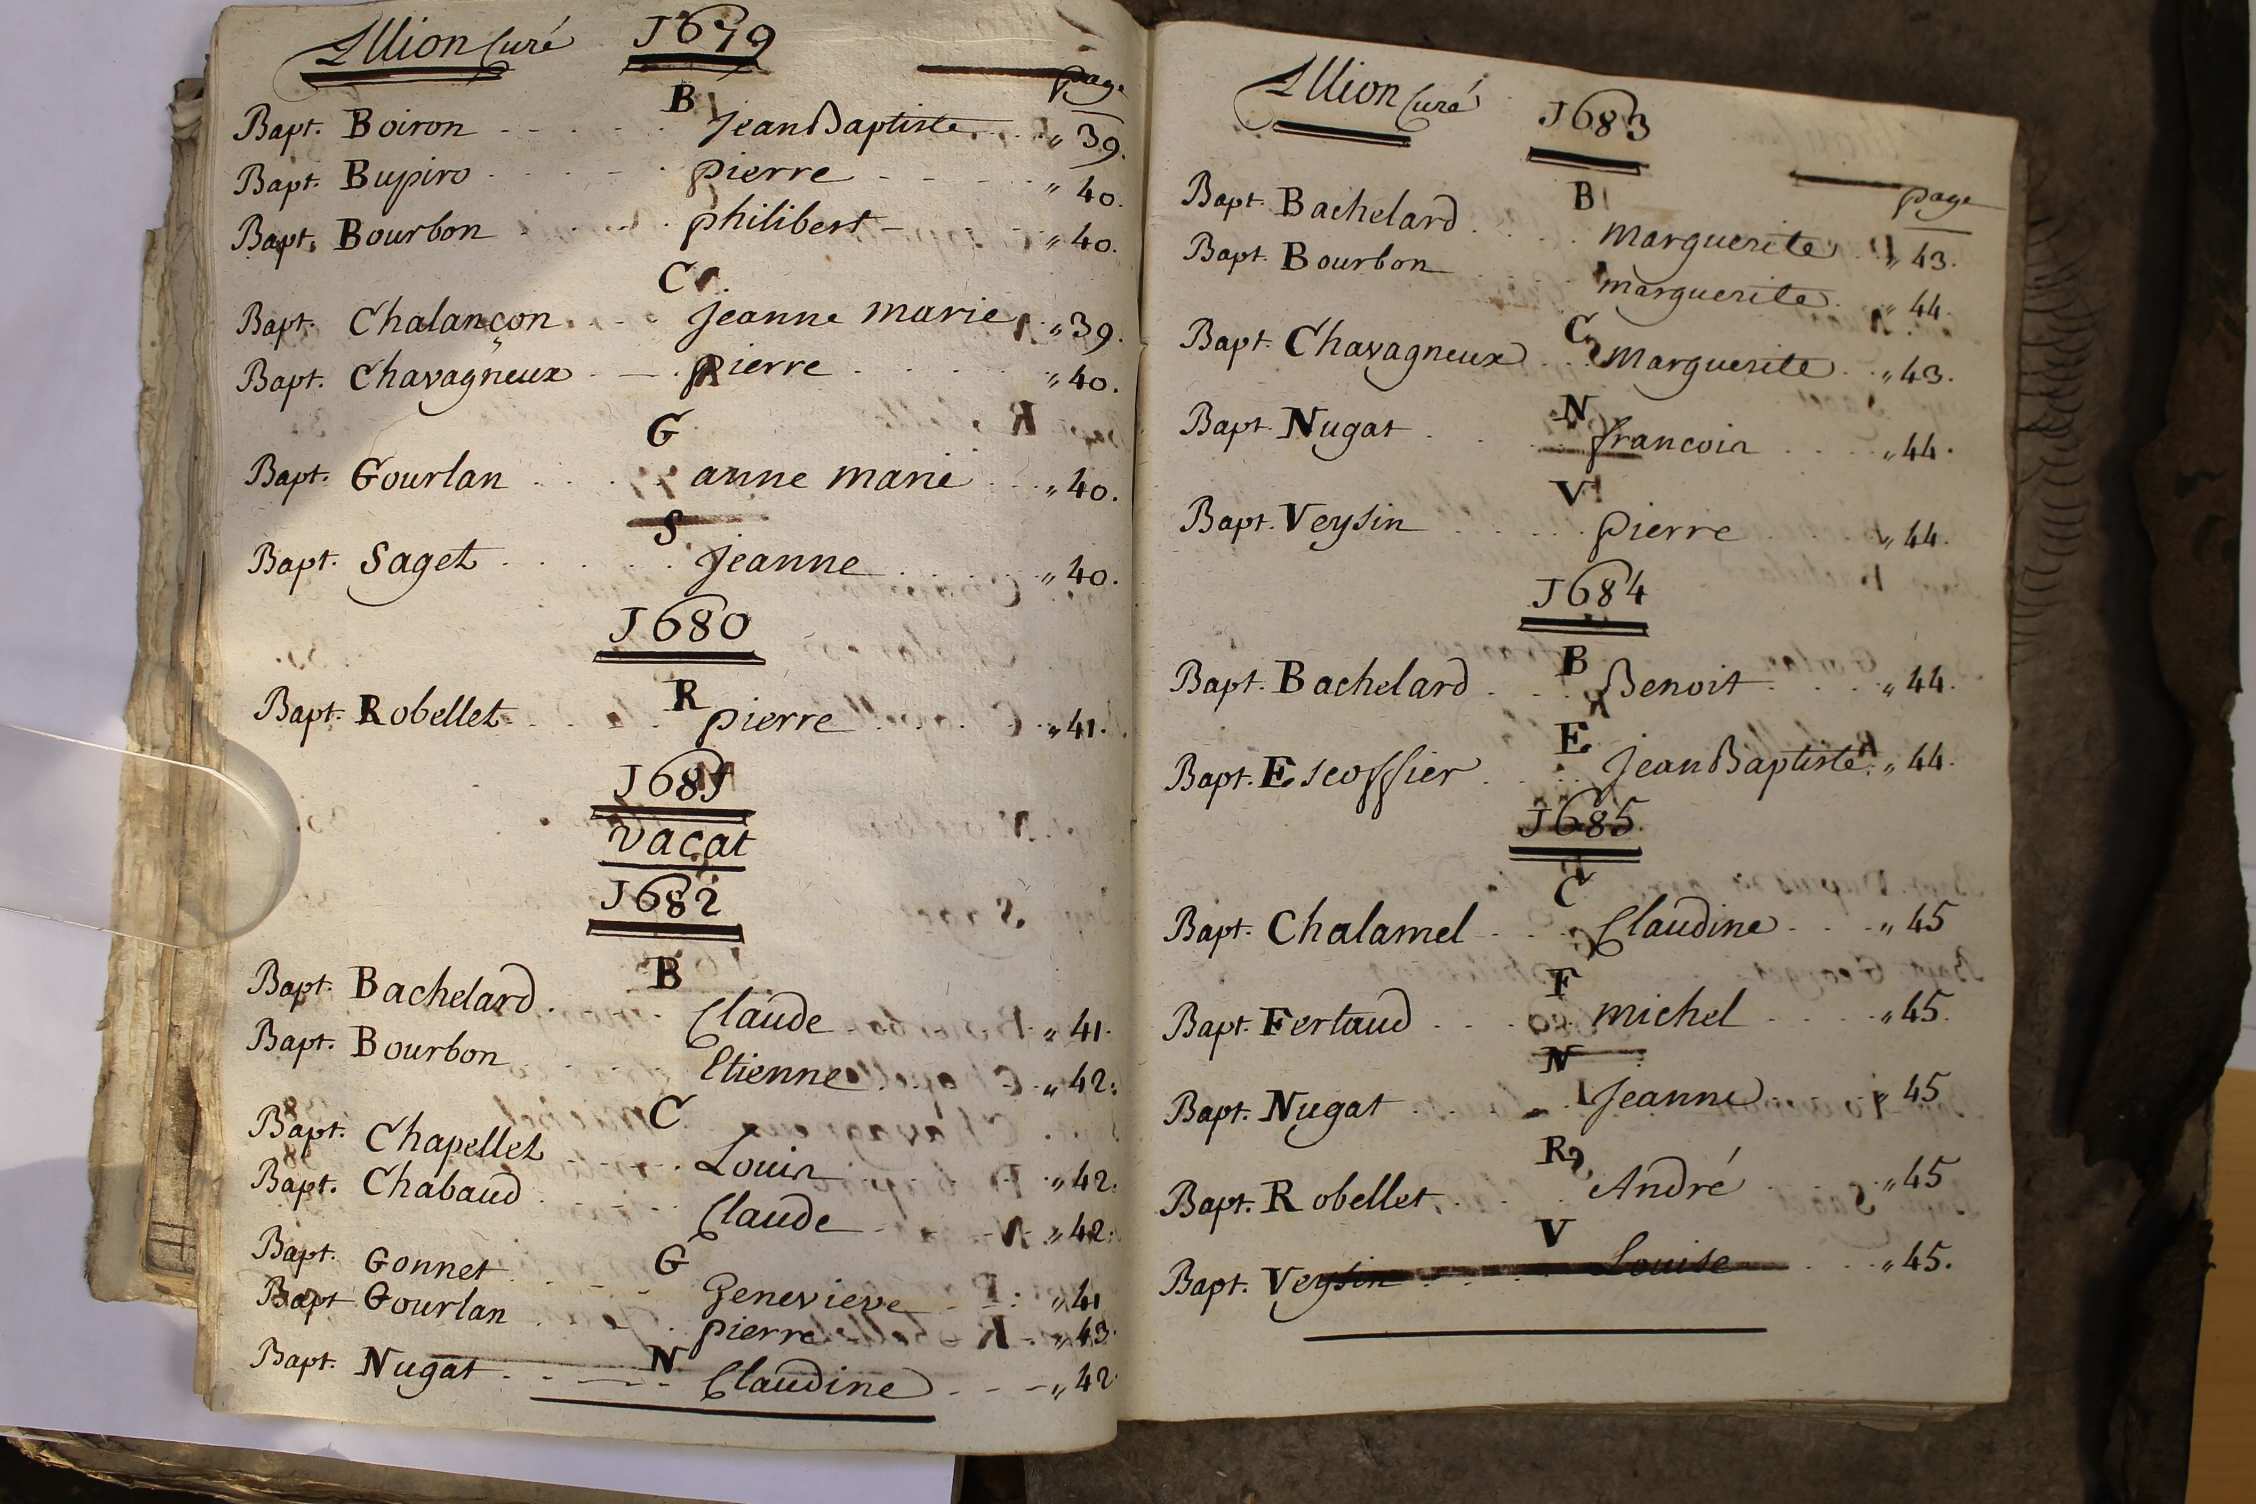 Allion Curé 1679
page
B
Bapt. Boiron Jean Baptiste " 39.
Bapt. Bupiro pierre " 40.
Bapt. Bourbon philibert " 40.
C
Bapt. Chalançon Jeanne marie " 39.
Bapt. Chavagneux pierre " 40.
G
Bapt. Gourlan anne marie " 40.
S
Bapt. Saget Jeanne " 40.
1680
R
Bapt. Robellet pierre " 41.
1681
vacat
1682
B
Bapt. Bachelard Claude " 41.
Bapt. Bourbon Etienne " 42.
C
Bapt. Chapellet Louis " 42.
Bapt. Chabaud Claude " 42.
G
Bapt. Gonnet Genevieve " 41
Bapt Gourlan pierre " 43.
N
Bapt. Nugat Claudine " 42.
Allion Curé 1683
page
B
Bapt. Bachelard marguerite " 43.
Bapt. Bourbon marguerite " 44.
C
Bapt. Chavagneux marguerite " 43.
N
Bapt. Nugat francois " 44.
V
Bapt. Veysin pierre " 44.
1684
B
Bapt. Bachelard Benoit " 44.
E
Bapt. Escoffier Jean Baptiste " 44.
1685
C
Bapt. Chalamel Claudine " 45
F
Bapt. Fertaud michel " 45.
N
Bapt. Nugat Jeanne " 45
R
Bapt. Robellet André " 45
V
Bapt. Veysin Louise " 45.